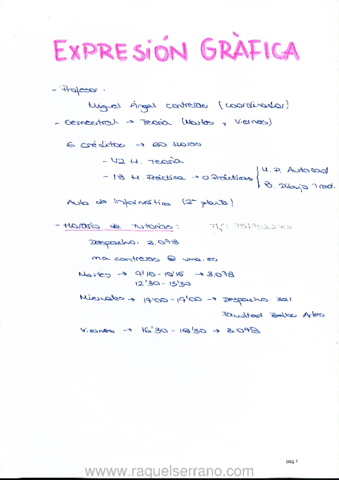 EXPRESIÓN GRÀFICA
- Profesor:
Miguel Ángel Contreras (coordinador)
- Semestral → Teoría (Martes y Viernes)
6 créditos → 60 Horas
- 42 H. Teoría
- 18 H. Práctica → Prácticas
A. P. Autocad
B. Dibujo Trad.
Aula de Informática (2ª planta)
- Horario de Tutorías:
Despacho: 2.098
ma contreras @ uma.es
Martes →
12'30 - 13'30
Miércoles → → Despacho 321
Facultad Bellas Artes
Viernes → 16'30 - 18'30 → 2.098
pag. 1
www.raquelserrano.com